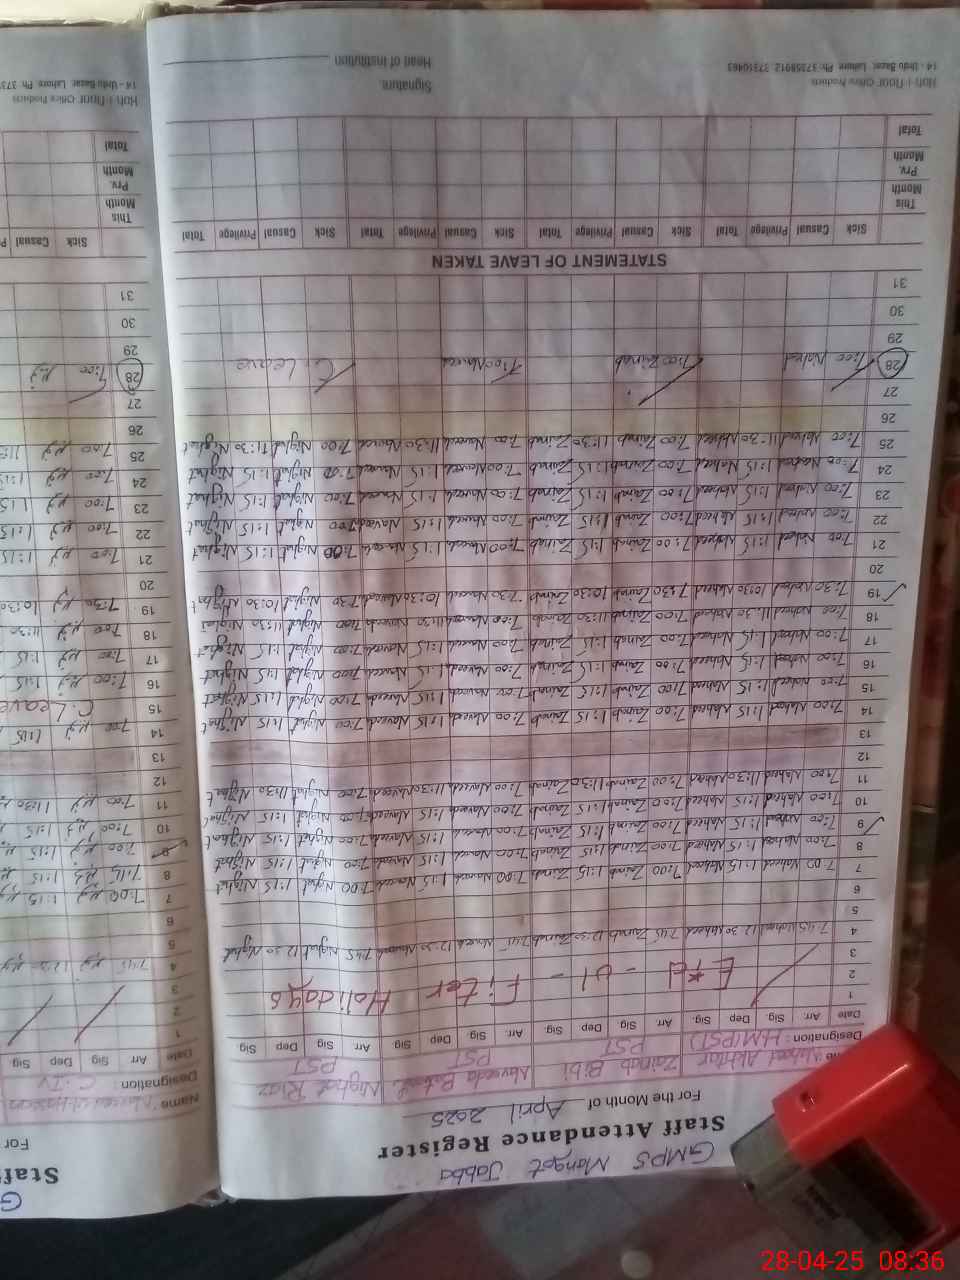 GMPS Mangot Jabba
Staff Attendance Register
For the Month of April 2025
Naheed Akhtar Zainab Bibi Naveeda Batool Nighat Riaz
Designation: HM(PST) PST PST PST
Date Arr. Sig Dep Sig. Arr. Sig Dep Sig Arr. Sig Dep Sig Arr. Sig Dep Sig
1
2 Eid - ul - Fiter Holidays
3
4 7:45 Naheed 12:30 Naheed 7:45 Zainab 12:30 Zainab 7:45 Naveed 12:30 Naveed 7:45 Nighat 12:30 Nighat
5
6
7 7:00 Naheed 1:15 Naheed 7:00 Zainab 1:15 Zainab 7:00 Naveed 1:15 Naveed 7:00 Nighat 1:15 Nighat
8 7:00 Naheed 1:15 Naheed 7:00 Zainab 1:15 Zainab 7:00 Naveed 1:15 Naveed 7:00 Nighat 1:15 Nighat
9 7:00 Naheed 1:15 Naheed 7:00 Zainab 1:15 Zainab 7:00 Naveed 1:15 Naveed 7:00 Nighat 1:15 Nighat
10 7:00 Naheed 1:15 Naheed 7:00 Zainab 1:15 Zainab 7:00 Naveed 1:15 Naveed 7:00 Nighat 1:15 Nighat
11 7:00 Naheed 11:30 Naheed 7:00 Zainab 11:30 Zainab 7:00 Naveed 11:30 Naveed 7:00 Nighat 11:30 Nighat
12
13
14 7:00 Naheed 1:15 Naheed 7:00 Zainab 1:15 Zainab 7:00 Naveed 1:15 Naveed 7:00 Nighat 1:15 Nighat
15 7:00 Naheed 1:15 Naheed 7:00 Zainab 1:15 Zainab 7:00 Naveed 1:15 Naveed 7:00 Nighat 1:15 Nighat
16 7:00 Naheed 1:15 Naheed 7:00 Zainab 1:15 Zainab 7:00 Naveed 1:15 Naveed 7:00 Nighat 1:15 Nighat
17 7:00 Naheed 1:15 Naheed 7:00 Zainab 1:15 Zainab 7:00 Naveed 1:15 Naveed 7:00 Nighat 1:15 Nighat
18 7:00 Naheed 11:30 Naheed 7:00 Zainab 11:30 Zainab 7:00 Naveed 11:30 Naveed 7:00 Nighat 11:30 Nighat
19 7:30 Naheed 10:30 Naheed 7:30 Zainab 10:30 Zainab 7:30 Naveed 10:30 Naveed 7:30 Nighat 10:30 Nighat
20
21 7:00 Naheed 1:15 Naheed 7:00 Zainab 1:15 Zainab 7:00 Naveed 1:15 Naveed 7:00 Nighat 1:15 Nighat
22 7:00 Naheed 1:15 Naheed 7:00 Zainab 1:15 Zainab 7:00 Naveed 1:15 Naveed 7:00 Nighat 1:15 Nighat
23 7:00 Naheed 1:15 Naheed 7:00 Zainab 1:15 Zainab 7:00 Naveed 1:15 Naveed 7:00 Nighat 1:15 Nighat
24 7:00 Naheed 1:15 Naheed 7:00 Zainab 1:15 Zainab 7:00 Naveed 1:15 Naveed 7:00 Nighat 1:15 Nighat
25 7:00 Naheed 11:30 Naheed 7:00 Zainab 11:30 Zainab 7:00 Naveed 11:30 Naveed 7:00 Nighat 11:30 Nighat
26
27
28 7:00 Naheed 7:00 Zainab 7:00 Naveed C. Leave
29
30
31
STATEMENT OF LEAVE TAKEN
Sick Casual Privilege Total Sick Casual Privilege Total Sick Casual Privilege Total Sick Casual Privilege Total
This Month
Prv. Month
Total
Office Products Signature
14 - Urdu Bazar Lahore. Ph: 37358912 37310463 Head of Institution
G
Staf
For
Name
Designation: C-IV
Date Arr Sig Dep Sig
1
2
3
4 7:45 12:30
5
6
7 7:00 1:15
8 7:15 1:15
9 7:00 1:15
10 7:00 1:15
11 7:00 11:30
12
13
14 7:00 1:15
15 C. Leave
16 7:00 1:15
17 7:00 1:15
18 7:00 11:30
19 7:30 10:30
20
21 7:00 1:15
22 7:00 1:15
23 7:00
24 7:00
25 7:00
26
27
28 7:00
29
30
31
Sick Casual
This Month
Prv. Month
Total
Office Products
14 - Urdu Bazar Lahore. Ph: 373
28-04-25 08:36